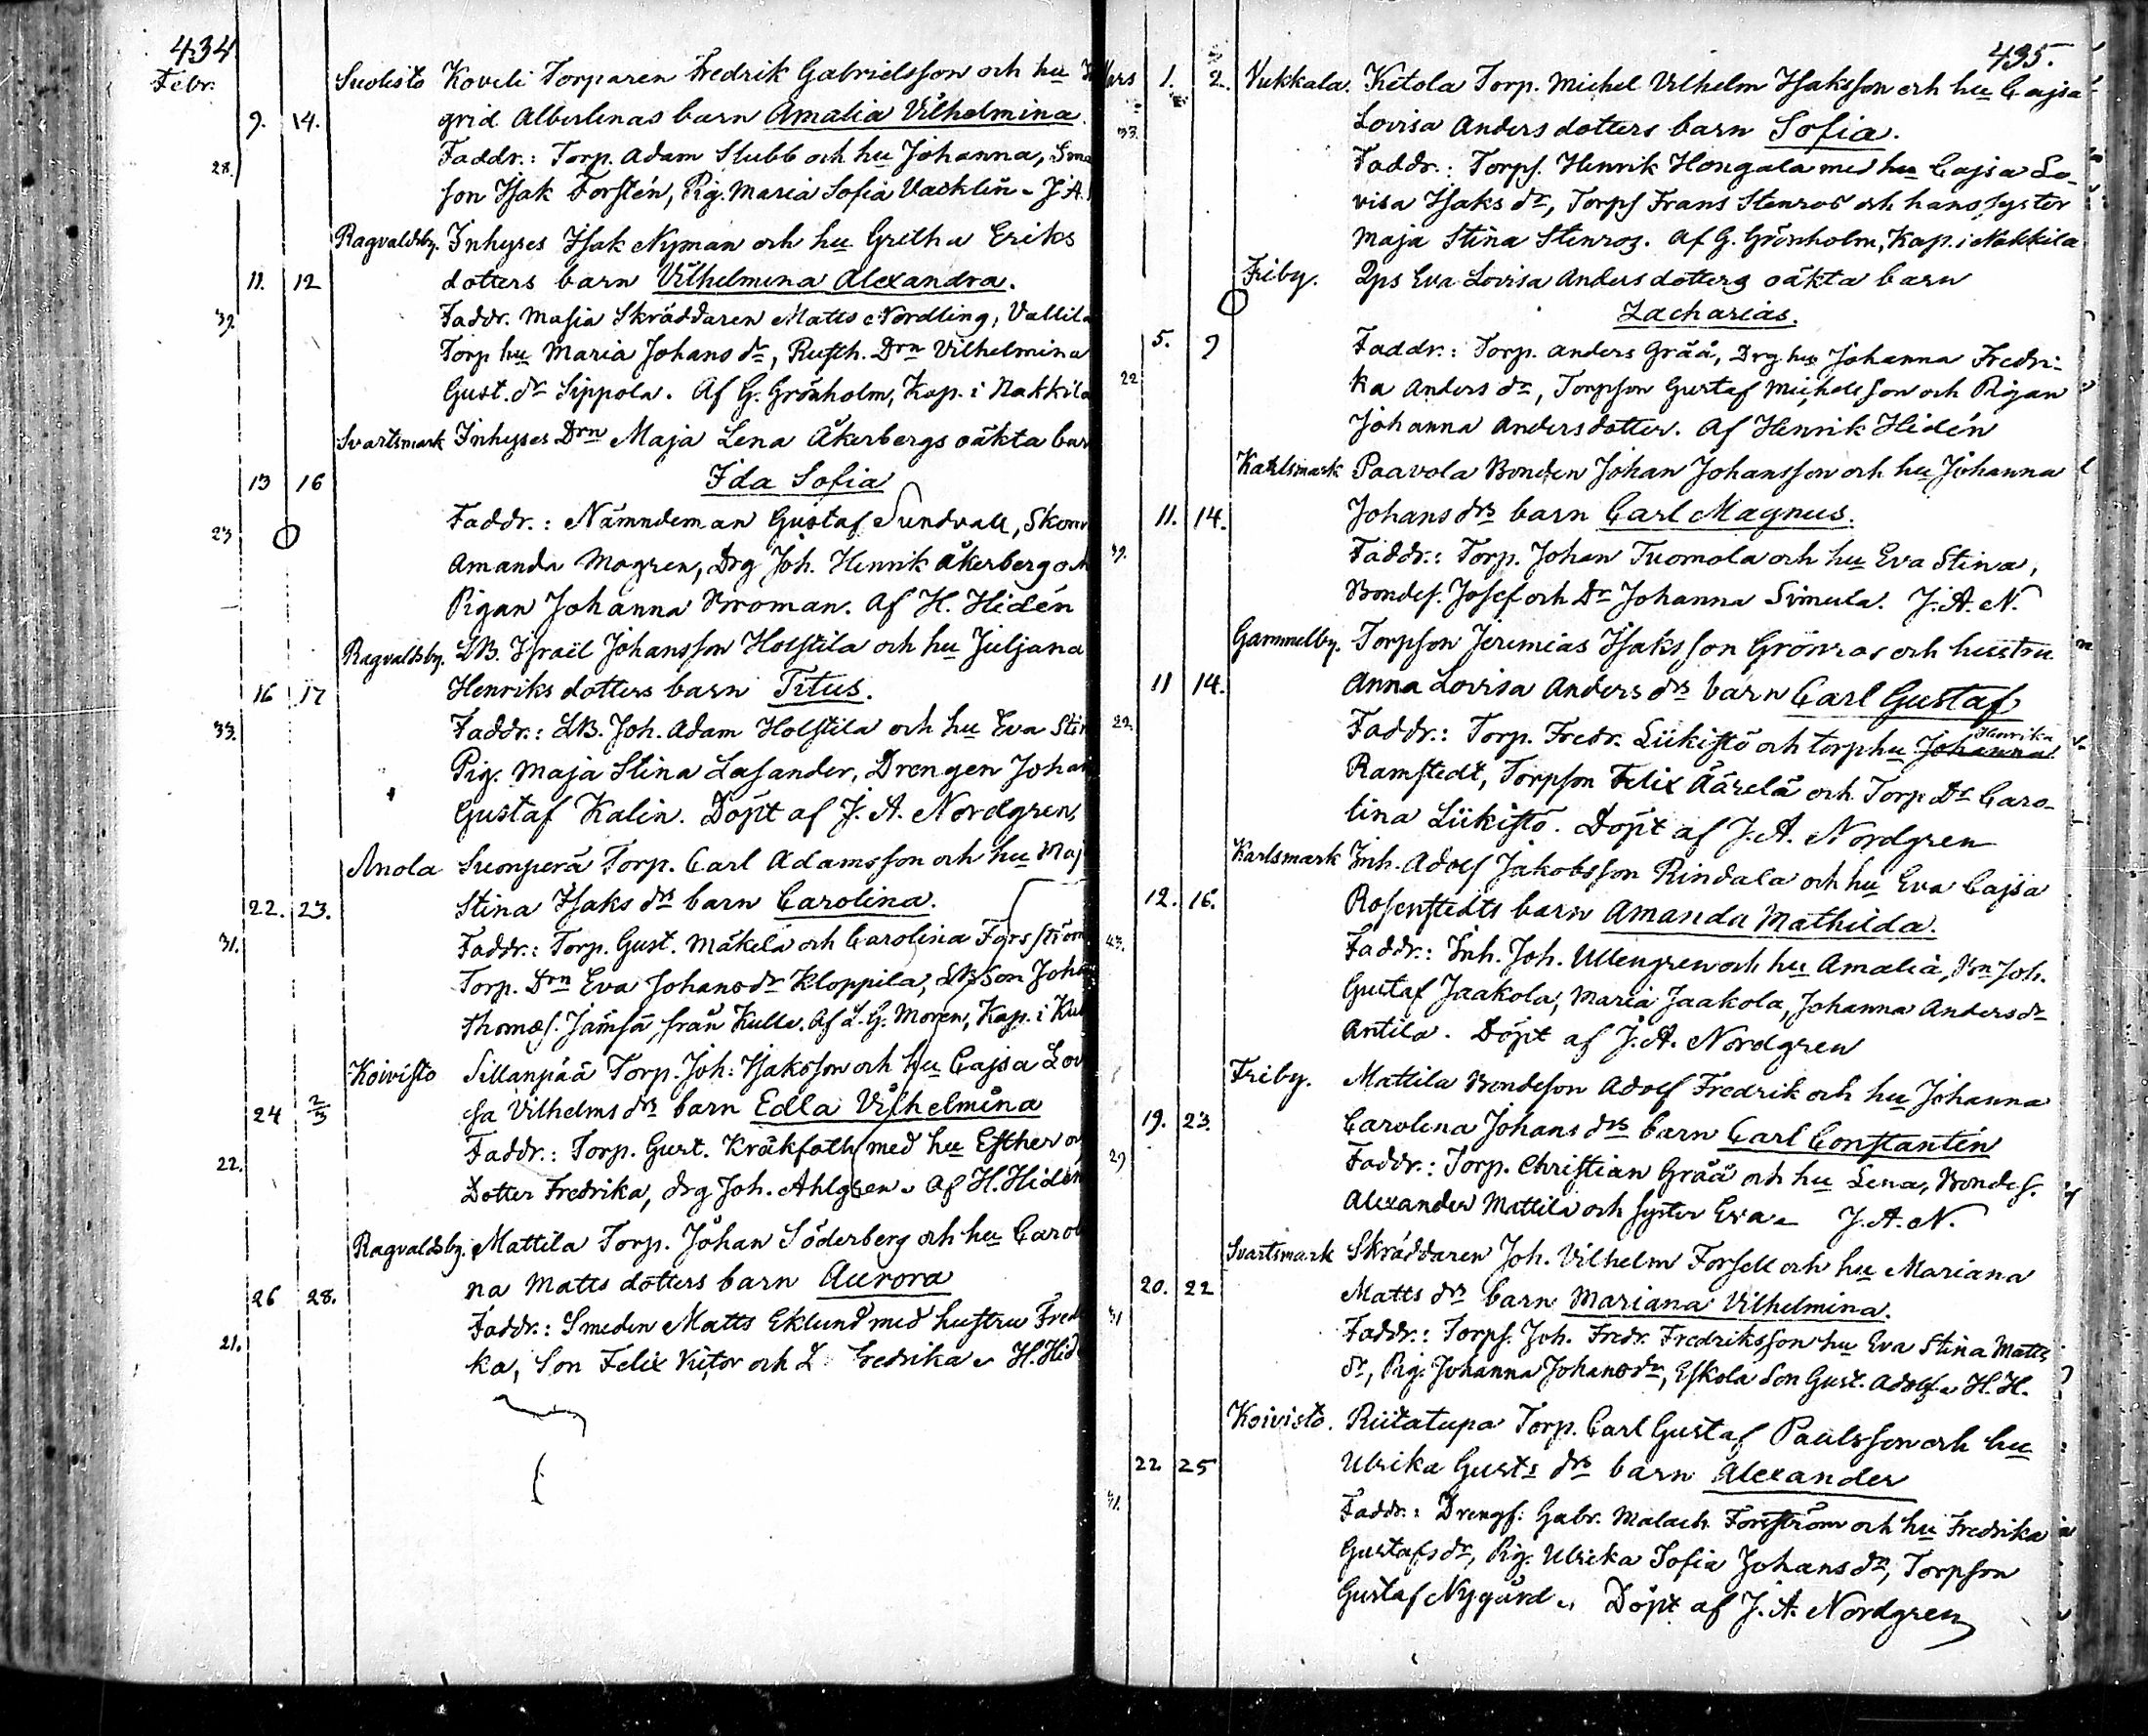 434
Febr.
Suolisto Koveli Torparen Fredrik Gabrielsson och hu
9. 14. grid Albertinas barn Amalia Vilhelmina
28. Faddr.: Torp. Adam Stubb och hu Johanna,
son Isak Forstén, Pig. Maria Sofia Vacklin - J. A.
Ragvaldsby. Inhyses Isak Nyman och hu Gretha Eriks
11. 12 dotters barn Vilhelmina Alexandra.
39. Faddr. Skräddaren Matts Nordling,
Torp hu Maria Johans dr, Rusth. Drn Vilhelmina
Gust. dr Sippola. Af G. Grönholm, Kap. i Nakkila
Svartsmark Inhyses Drn Maja Lena Åkerbergs oäkta bar
13 16 Ida Sofia
23 Faddr.: Nämndeman Gustaf Sundvall,
Amanda Mogren, Drg Joh. Henrik Åkerberg och
Pigan Johanna Broman. Af H. Hidén
Ragvaldsby. LB. Israël Johansson Holstila och hu Juljana
16 17 Henriks dotters barn Titus.
33. Faddr.: LB. Joh. Adam Holstila och hu Eva Stin
Pig. Maja Stina Lasander, Drengen Johan
Gustaf Kalin. Döpt af J. A. Nordgren,
Anola Suonperä Torp. Carl Adamsson och hu Maj
22. 23. Stina Isaks drs barn Carolina.
31. Faddr.: Torp. Gust. Mäkelä och Carolina Fors ström
Torp. Drn Eva Johans dr Kloppila, LB Son Joh
Thomas. Jämsä från Kulla. Af L. G. Moren, Kap. i Kul
Koivisto Sillanpää Torp. Joh: Isaksson och hu Cajsa Lov
24 2/3 sa Vilhelms drs barn Edla Vilhelmina
22. Faddr.: Torp. Gust. Kräkfoth med hu Esther o
Dotter Fredrika, drg Joh. Ahlgren. Af H. Hidén
Ragvaldsby. Mattila Torp. Johan Söderberg och hu Caroli
26 28. na Matts dotters barn Aurora
21. Faddr.: Smeden Matts Eklund med hustru Fred
ka, Son Felix Victor och D Fredrika. H. Hid
435.
Mars 1. 2. Vukkala. Ketola Torp. Michel Vilhelm Isaksson och hu Cajsa
33. Lovisa Anders dotters barn Sofia.
Faddr.: Torps. Henrik Hongala med hu Cajsa Lo-
visa Isaks dr, Torps Frans Stenros och hans syster
Maja Stina Stenros. Af G. Grönholm, Kap. i Nakkila
Friby. Qps Eva Lovisa Anders dotters oäkta barn
Zacharias.
5. 9 Faddr.: Torp. Anders Grää, Drg hu Johanna Fredri-
22 ka Anders dr, Torpson Gustaf Michelsson och Pigan
Johanna Andersdotter. Af Henrik Hidén
Karlsmark Paavola Bonden Johan Johansson och hu Johanna
11. 14. Johans drs barn Carl Magnus.
39. Faddr.: Torp. Johan Tuomola och hu Eva Stina,
Bondes. Josef och Dr Johanna Simula. J. A. N.
Gammelby. Torpson Jeremias Isaksson Grönroos och hustru
11 14. Anna Lovisa Anders drs barn Carl Gustaf
22 Faddr.: Torp. Fredr. Liikistö och torp hu Johanna Henrika
Ramstedt, Torpson Felix Äärelä och Torp. Dr Caro-
lina Liikistö. Döpt af J. A. Nordgren
Karlsmark Inh. Adolf Jakobsson Rindala och hu Eva Cajsa
12. 16. Rosenstedts barn Amanda Mathilda.
43. Faddr.: Inh. Joh. Ullengren och hu Amalia, Bn Joh.
Gustaf Jaakola, Maria Jaakola, Johanna Anders dr
Antila. Döpt af J. A. Nordgren
Friby. Mattila Bondeson Adolf Fredrik och hu Johanna
19. 23. Carolina Johans drs barn Carl Constantin
29 Faddr.: Torp. Christian Grää och hu Lena, Bondes.
Alexander Mattila och syster Eva. J. A. N.
Svartsmark Skräddaren Joh. Vilhelm Forsell och hu Mariana
20. 22 Matts drs barn Mariana Vilhelmina.
31 Faddr.: Torps. Joh. Fredr. Fredriksson hu Eva Stina Matts
dr, Pig. Johanna Johans dr, Eskola Son Gust. Adolf. H. H.
Koivisto. Riitatupa Torp. Carl Gustaf Paulsson och hu
22 25 Ulrika Gusts drs barn Alexander
31. Faddr.: Drengs: Gabr. Malach. Forsström och hu Fredrika
Gustafs dr, Pig. Ulrika Sofia Johans dr, Torpson
Gustaf Nygård. Döpt af J. A. Nordgren